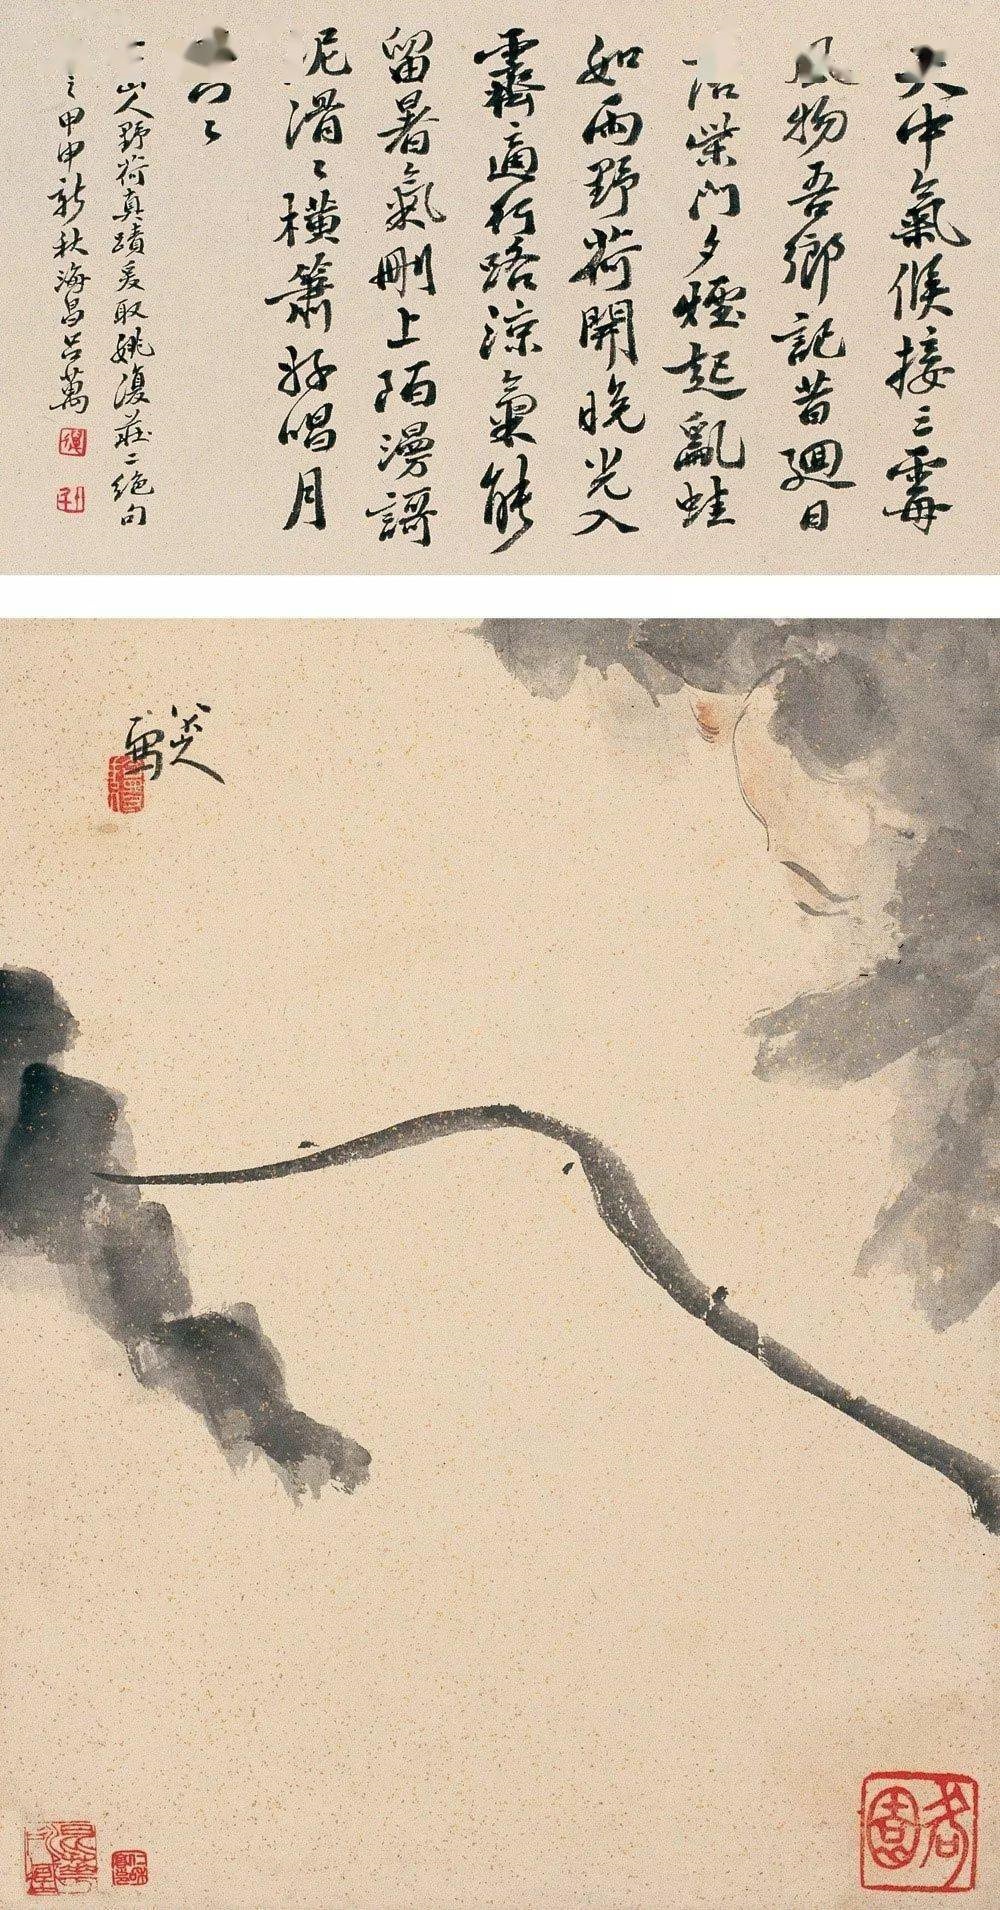 天中氣候接三霉
風物吾鄉記昔迴日
落柴門夕煙起亂蛙
如雨野荷開晚光入
霽適行路涼氣能
留暑氣刪上陌漫謌
泥滑〻橫簫好唱月
山人野荷真蹟爰取姚復莊二絕句
之甲申新秋海昌呂萬
八大山人
寫